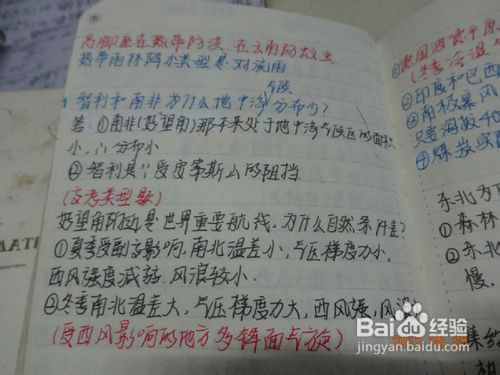 高脚屋在热带防洪,在云南防蚊虫
热带雨林降水类型是对流雨
气候
智利和南非为什么地中海分布少?
答:①南非(好望角)那本来处于地中海气候区的面积
小,∴分布小
②智利是∵受安第斯山的阻挡.
(文考类型题)
好望角附近是世界重要航线,为什么自然条件差?
①夏季受副高影响,南北温差小,气压梯度力小,
西风强度减弱,风浪较小.
②冬季南北温差大,气压梯度力大,西风强,风
(受西风影响的地方多锋面气旋)
(冬季冷湿,
②印度和巴西
③南极暴风
只要海拔
④煤炭
东北方
①森林
②东北
慢.
Baidu经验
jingyan.baidu.com